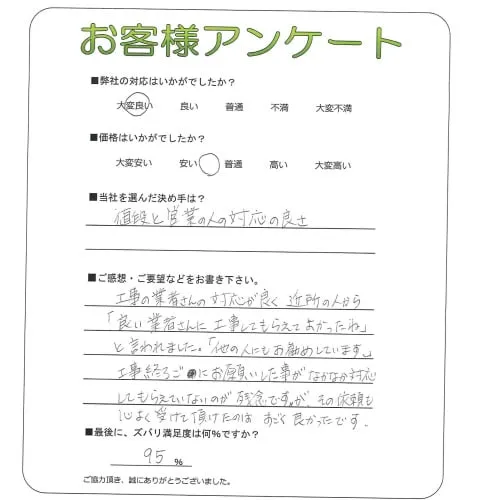 お客様アンケート
■弊社の対応はいかがでしたか？
大変良い 良い 普通 不満 大変不満
■価格はいかがでしたか？
大変安い 安い 普通 高い 大変高い
■当社を選んだ決め手は？
値段と営業の人の対応の良さ
■ご感想・ご要望などをお書き下さい。
工事の業者さんの対応が良く 近所の人から
「良い業者さんに工事してもらえてよかったね」
と言われました。「他の人にもお勧めしています。」
工事終るごにお願いした事がなかなか対応
してもらえていないのが残念ですが、その依頼も
心よく受けて頂けたのは すごく良かったです。
■最後に、ズバリ満足度は何％ですか？
95 ％
ご協力頂き、誠にありがとうございました。